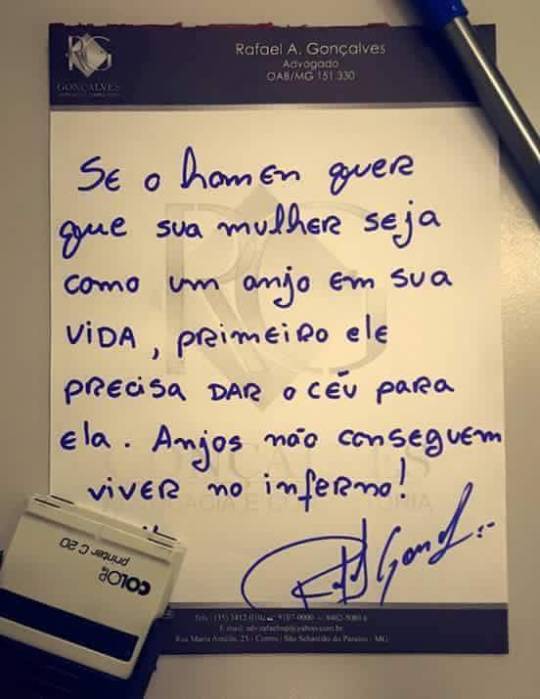 RG
GONÇALVES
Rafael A. Gonçalves
Advogado
OAB/MG 151.330
SE o homen quer
que sua mulher seja
como um anjo em sua
VIDA, primeiro ele
precisa DAR o céu para
ela. Anjos não conseguem
viver no inferno!
COLOP
printer C 20
Rua Maria Amália, 25 - Centro - São Sebastião do Paraíso - MG